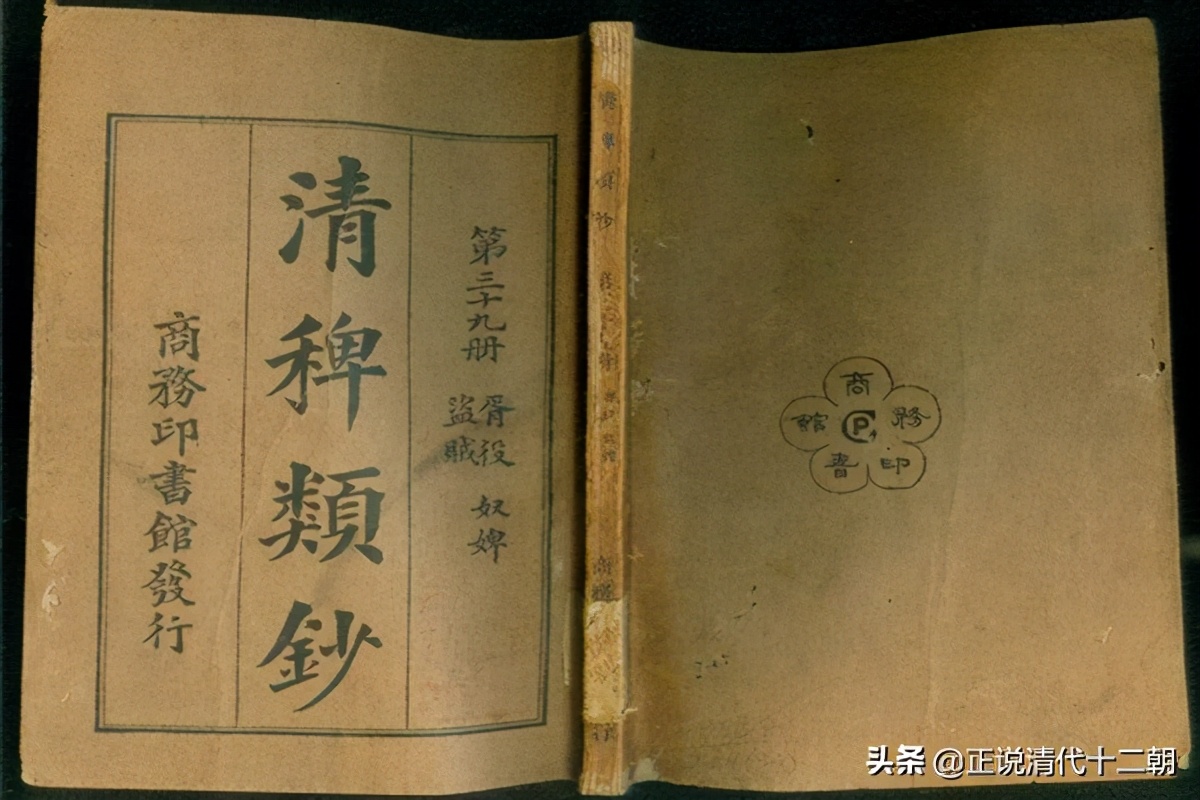 第三十九册 胥役 奴婢
盜賊
清稗類鈔
商務印書館發行
商務印書館
CP
头条 @正说清代十二朝